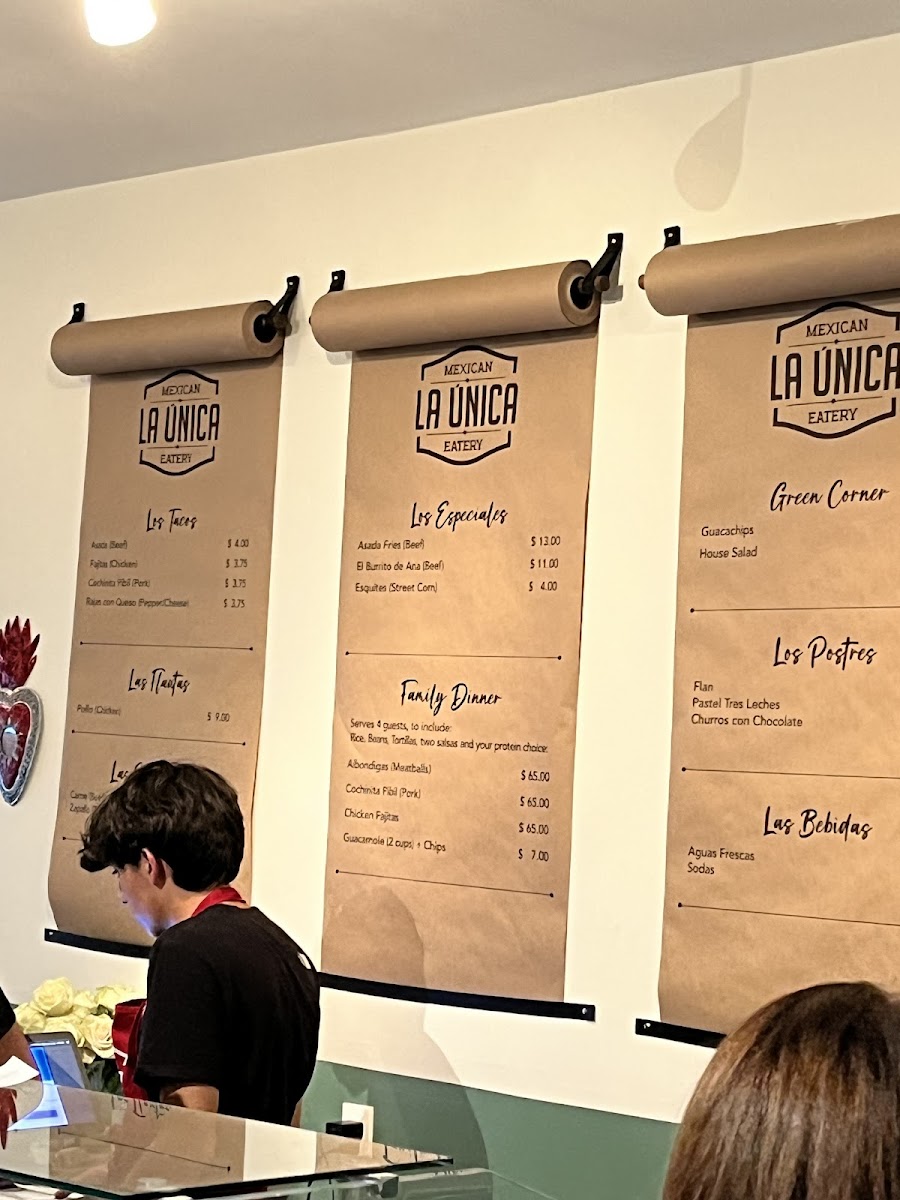 MEXICAN
LA ÚNICA
EATERY
Los Tacos
Asada (Beef) $ 4.00
Fajitas (Chicken) $ 3.75
Cochinita Pibil (Pork) $ 3.75
Rajas con Queso (Pepper/Cheese) $ 3.75
Las Flautas
Pollo (Chicken) $ 9.00
Las
Carne
MEXICAN
LA ÚNICA
EATERY
Los Especiales
Asada Fries (Beef) $ 13.00
El Burrito de Ana (Beef) $ 11.00
Esquites (Street Corn) $ 4.00
Family Dinner
Serves 4 guests, to include:
Rice, Beans, Tortillas, two salsas and your protein choice:
Albondigas (Meatballs) $ 65.00
Cochinita Pibil (Pork) $ 65.00
Chicken Fajitas $ 65.00
Guacamole (2 cups) + Chips $ 7.00
MEXICAN
LA ÚNICA
EATERY
Green Corner
Guacachips
House Salad
Los Postres
Flan
Pastel Tres Leches
Churros con Chocolate
Las Bebidas
Aguas Frescas
Sodas